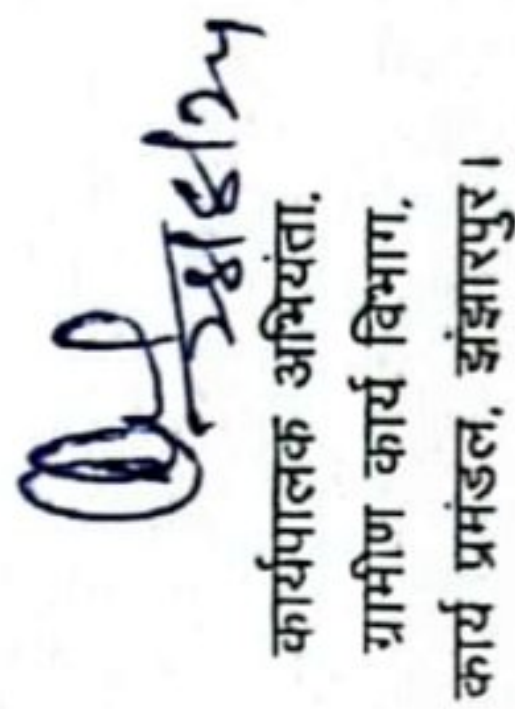 28/8/24
कार्यपालक अभियंता,
ग्रामीण कार्य विभाग,
कार्य प्रमंडल, झंझारपुर।